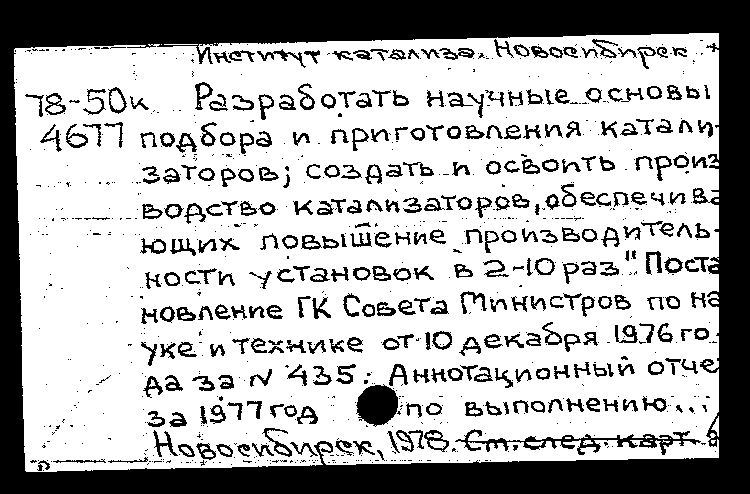 Институт катализа. Новосибирск
78-50к Разработать научные основы
4677 подбора и приготовления катали-
заторов; создать и освоить произ
водство катализаторов, обеспечива
ющих повышение производитель-
ности установок в 2-10 раз". Поста
новление ГК Совета Министров по на
уке и технике от 10 декабря 1976 го-
да за N 435. Аннотационный отче
за 1977 год по выполнению...
Новосибирск, 1978. См. след. карт.